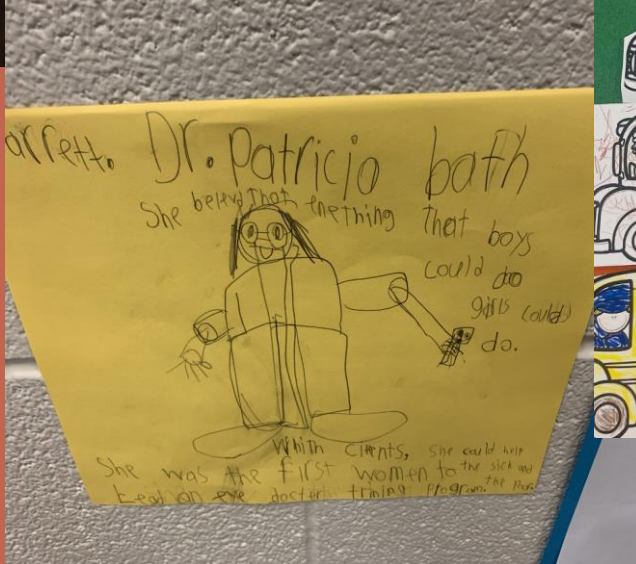 arrett. Dr. Patricia bath
She beleved That enething That boys
could do
girls could
do.
Whith clients, she could help
the sick and
the poor.
She was the first women to
lead an eye doctor trining program.